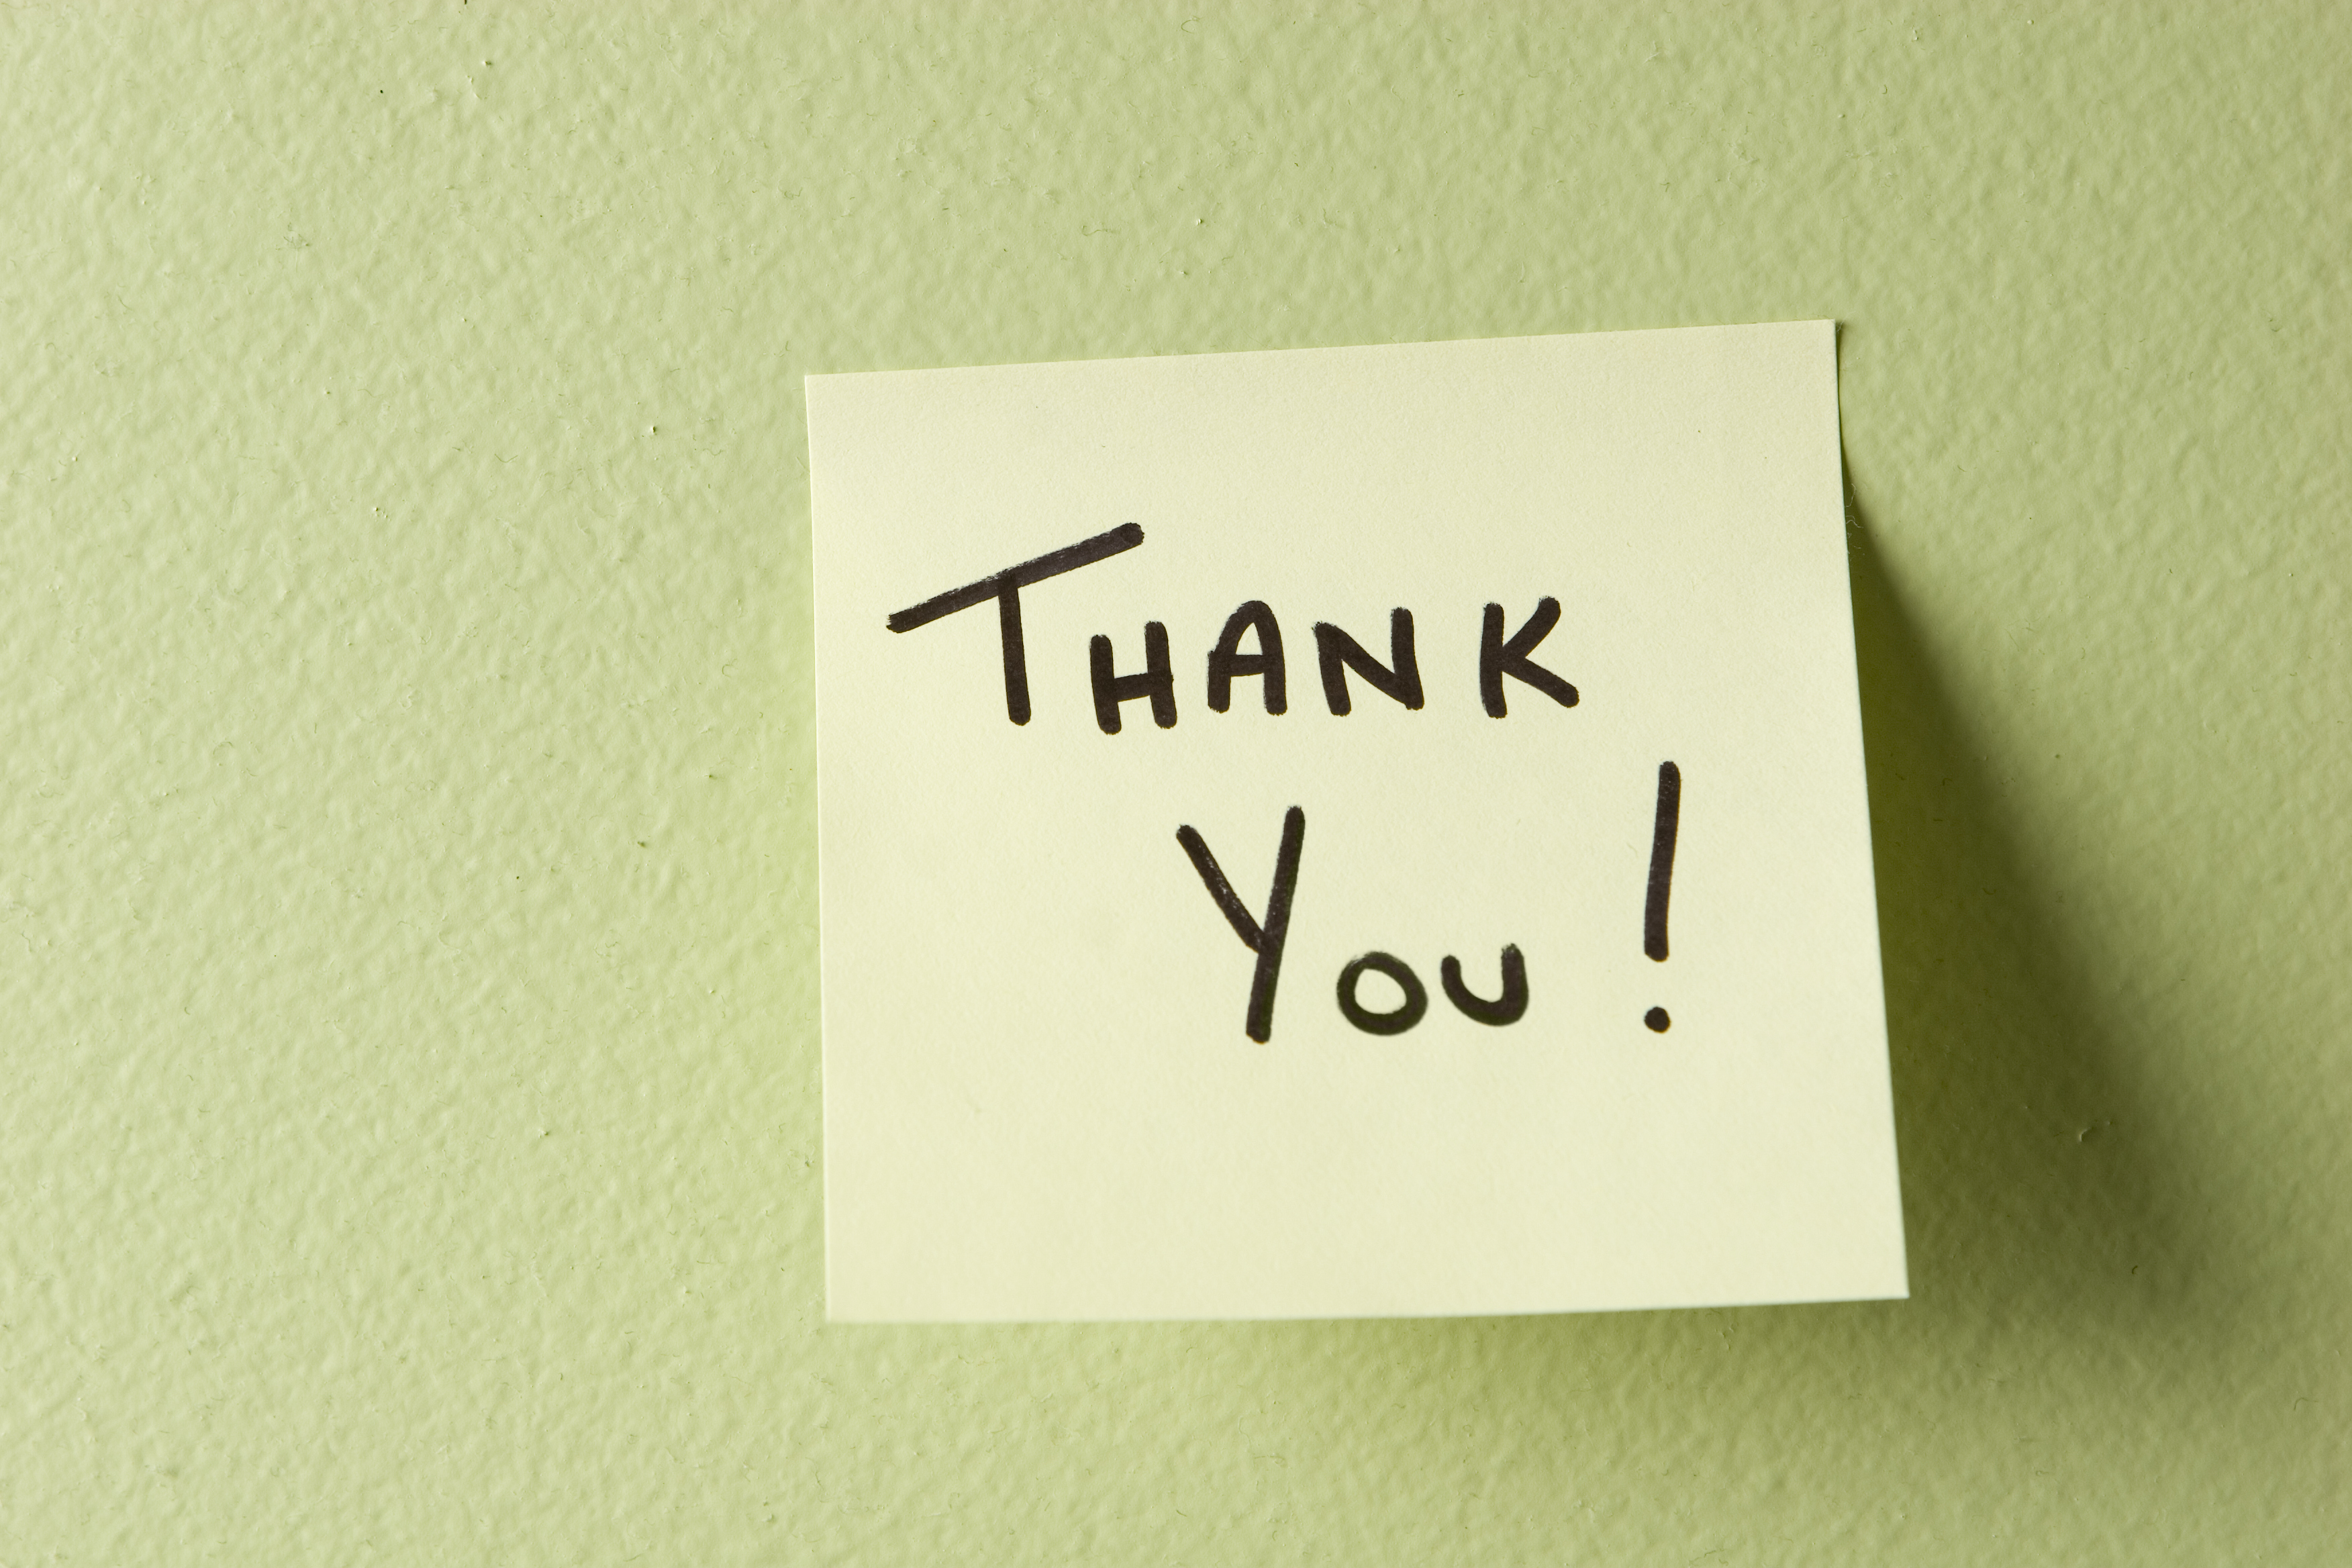 THANK
YOU !